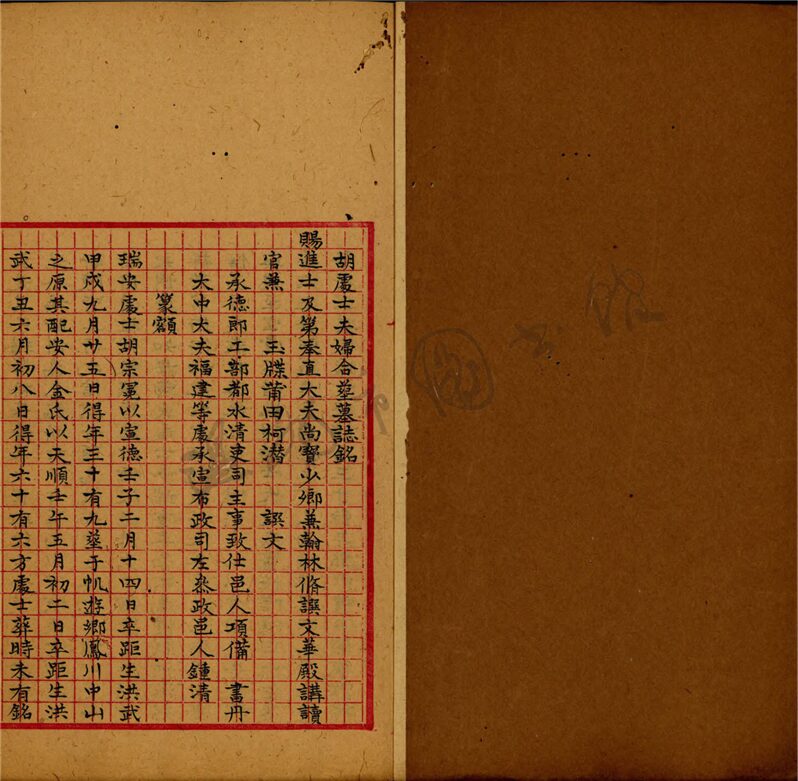 胡處士夫婦合塟墓誌銘
賜進士及第奉直大夫尚寶少卿兼翰林脩譔文華殿講讀
官兼　玉牒莆田柯潛　譔文
承德郎工部都水清吏司主事致仕邑人項備　書丹
大中大夫福建等處承宣布政司左叅政邑人鍾清
篆額
瑞安處士胡宗冕以宣德壬子二月十四日卒距生洪武
甲戍九月廿五日得年三十有九塟于帆遊鄉鳳川中山
之原其配安人金氏以天順壬午五月初二日卒距生洪
武丁丑六月初八日得年六十有六方處士葬時未有銘